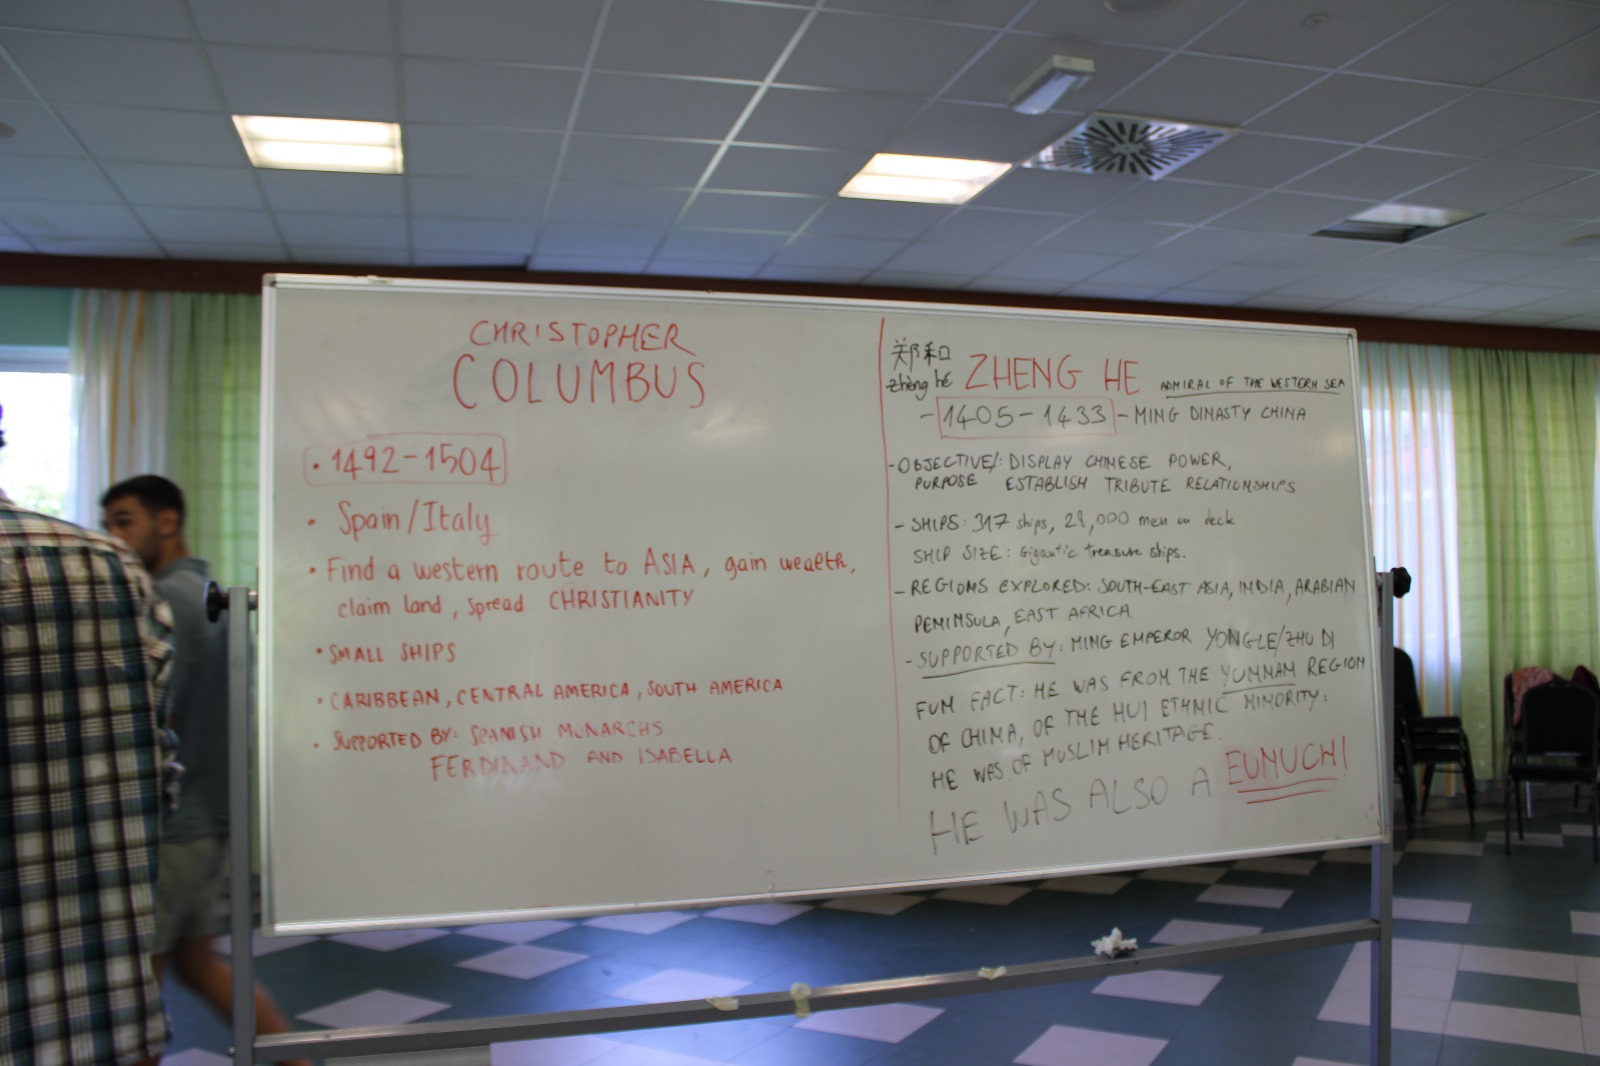 CHRISTOPHER
COLUMBUS
• 1492-1504
• Spain/Italy
• Find a western route to ASIA, gain wealth,
claim land, spread CHRISTIANITY
• SMALL SHIPS
• CARIBBEAN, CENTRAL AMERICA, SOUTH AMERICA
• SUPPORTED BY: SPANISH MONARCHS
FERDINAND AND ISABELLA
郑和
zhèng hé ZHENG HE ADMIRAL OF THE WESTERN SEA
- 1405-1433 - MING DINASTY CHINA
- OBJECTIVE/: DISPLAY CHINESE POWER,
PURPOSE ESTABLISH TRIBUTE RELATIONSHIPS
- SHIPS: 317 ships, 28,000 men on deck
SHIP SIZE: Gigantic treasure ships.
- REGIONS EXPLORED: SOUTH-EAST ASIA, INDIA, ARABIAN
PENINSULA, EAST AFRICA
- SUPPORTED BY: MING EMPEROR YONGLE/ZHU DI
FUN FACT: HE WAS FROM THE YUNNAN REGION
OF CHINA, OF THE HUI ETHNIC MINORITY:
HE WAS OF MUSLIM HERITAGE.
HE WAS ALSO A EUNUCH!